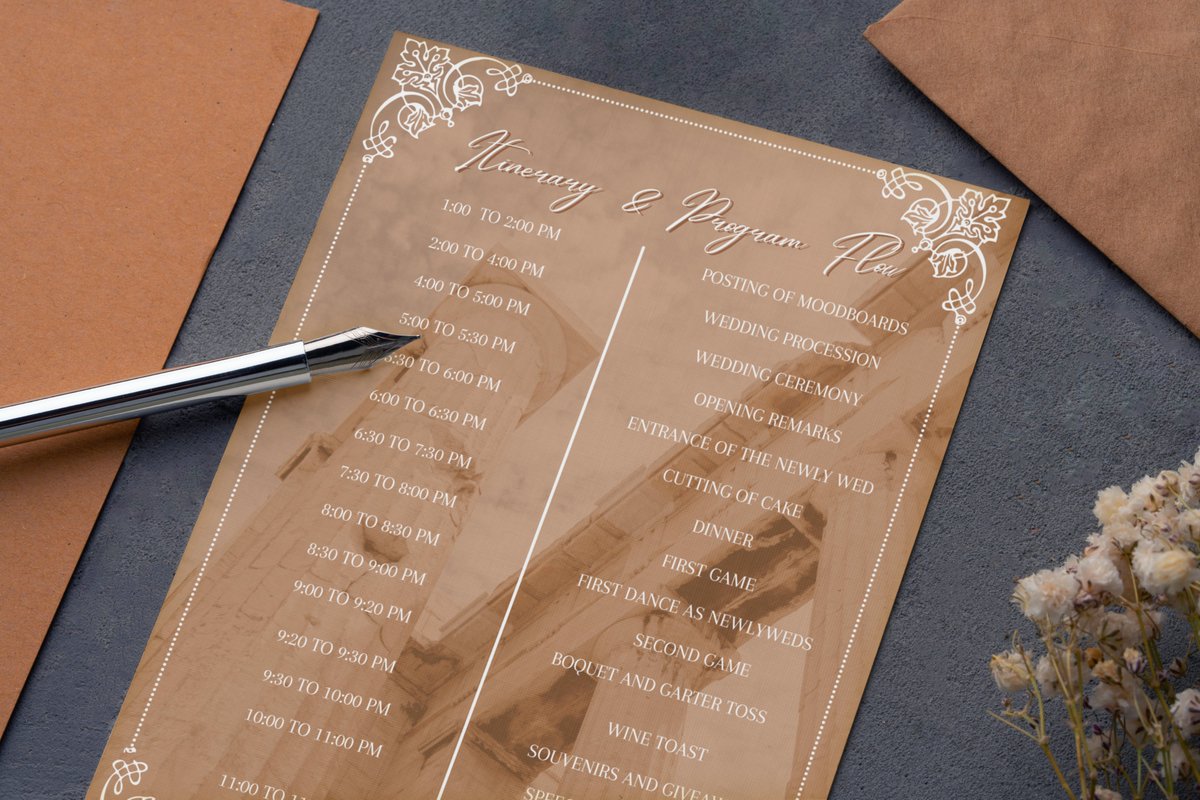 Itinerary & Program Flow
1:00 TO 2:00 PM
2:00 TO 4:00 PM
4:00 TO 5:00 PM
5:00 TO 5:30 PM
5:30 TO 6:00 PM
6:00 TO 6:30 PM
6:30 TO 7:30 PM
7:30 TO 8:00 PM
8:00 TO 8:30 PM
8:30 TO 9:00 PM
9:00 TO 9:20 PM
9:20 TO 9:30 PM
9:30 TO 10:00 PM
10:00 TO 11:00 PM
11:00 TO
POSTING OF MOODBOARDS
WEDDING PROCESSION
WEDDING CEREMONY
OPENING REMARKS
ENTRANCE OF THE NEWLY WED
CUTTING OF CAKE
DINNER
FIRST GAME
FIRST DANCE AS NEWLYWEDS
SECOND GAME
BOQUET AND GARTER TOSS
WINE TOAST
SOUVENIRS AND